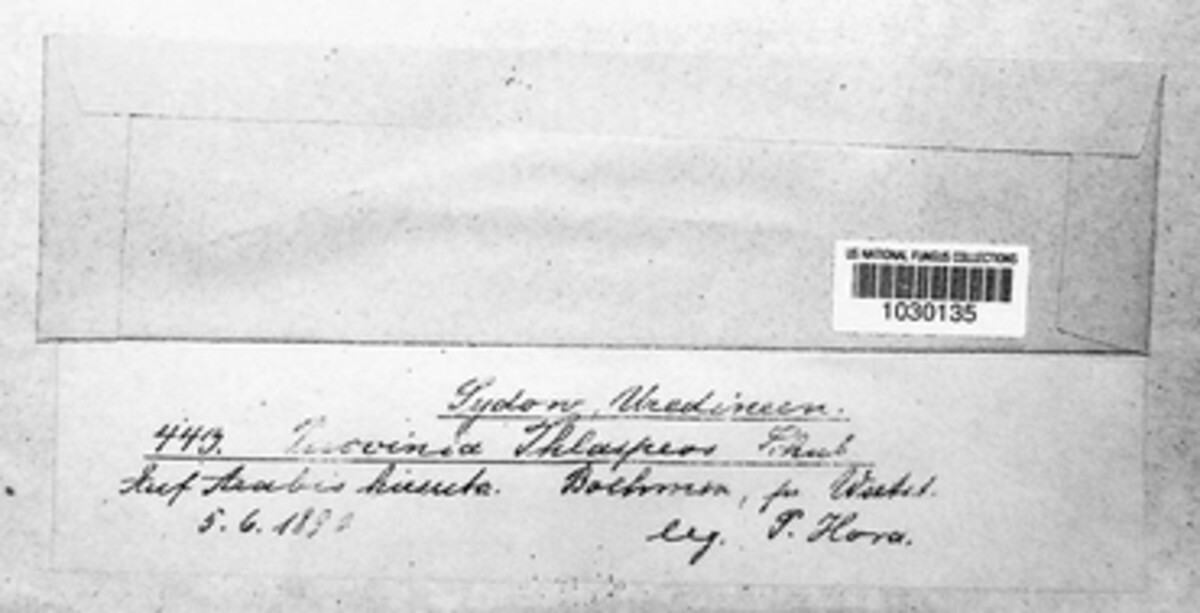 US NATIONAL FUNGUS COLLECTIONS
1030135
Sydow, Uredineen.
443. Puccinia Thlaspeos Schub
Auf Arabis hirsuta. Boehmen,
5. 6. 189
leg. P. Hora.